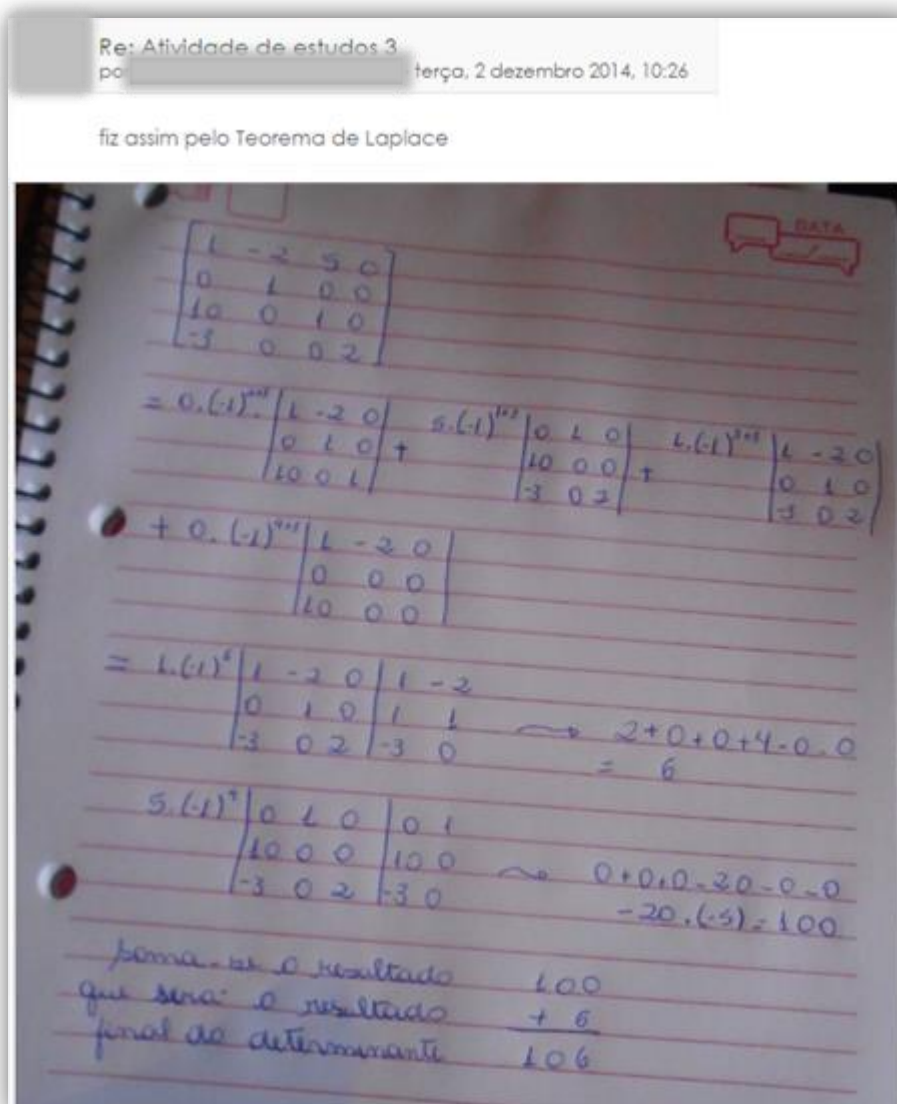 Re: Atividade de estudos 3
po terça, 2 dezembro 2014, 10:26
fiz assim pelo Teorema de Laplace
DATA
1 -2 5 0
0 1 0 0
10 0 1 0
-3 0 0 2
= 0.(-1) |1 -2 0| + 5.(-1)¹⁺³ |0 1 0| + 1.(-1)³⁺³ |1 -2 0|
|0 1 0| |10 0 0| |0 1 0|
|10 0 1| |-3 0 2| |-3 0 2|
+ 0.(-1)⁴⁺³ |1 -2 0|
|0 0 0|
|10 0 0|
= 1.(-1)⁶ |1 -2 0| 1 -2
|0 1 0| 1 1 → 2+0+0+4-0-0
|-3 0 2| -3 0 = 6
5.(-1)⁴ |0 1 0| 0 1
|10 0 0| 10 0 → 0+0+0-20-0-0
|-3 0 2| -3 0 -20.(-5)=100
soma-se o resultado 100
que será o resultado + 6
final do determinante 106